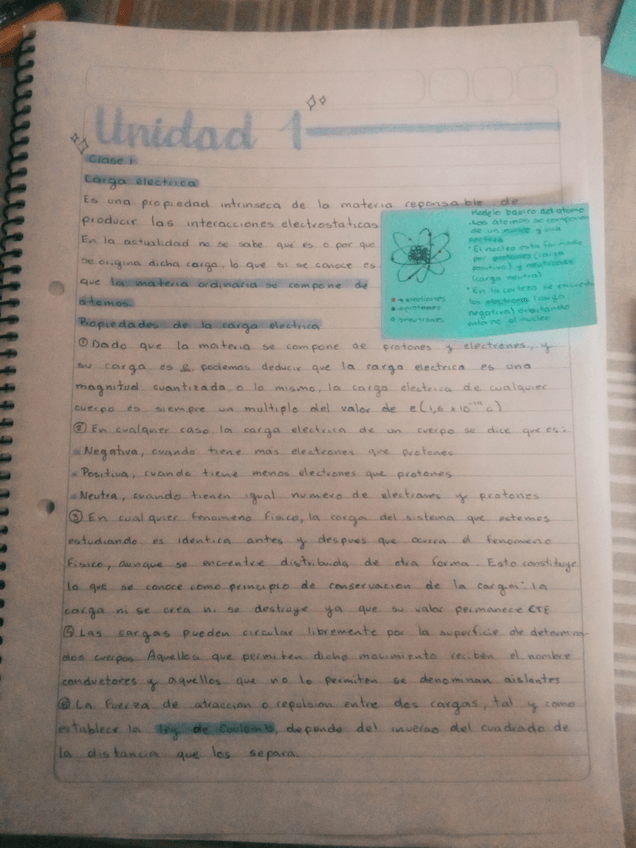 Unidad 1
Clase 1
Carga electrica
Es una propiedad intrinseca de la materia reponsable de
producir las interacciones electrostaticas
En la actualidad no se sabe que es o por que
se origina dicha carga, lo que si se conoce es
que la materia ordinaria se compone de
átomos.
Modelo basico del atomo
Los atomos se componen
de un nucleo y una
corteza
El nucleo esta formado
por protones (carga
positiva) y neutrones
(carga neutra)
En la corteza se encuentra
los electrones (carga
negativa) orbitando
entorno al nucleo
→ electrones
→ protones
neutrones
Propiedades de la carga electrica
① Dado que la materia se compone de protones y electrones, y
su carga es e, podemos deducir que la carga electrica es una
magnitud cuantizada, o lo mismo, la carga electrica de cualquier
cuerpo es siempre un multiplo del valor de e (1,6 x 10⁻¹⁹ c)
② En cualquier caso, la carga electrica de un cuerpo se dice que es:
Negativa, cuando tiene mas electrones que protones
Positiva, cuando tiene menos electrones que protones
Neutra, cuando tienen igual numero de electrones y protones
③ En cualquier fenomeno fisico, la carga del sistema que estemos
estudiando es identica antes y despues que ocurra el fenomeno
fisico, aunque se encuentre distribuida de otra forma. Esto constituye
lo que se conoce como principio de conservacion de la carga: la
carga ni se crea ni se destruye ya que su valor permanece CTE
Las cargas pueden circular libremente por la superficie de determina-
dos cuerpos Aquellos que permiten dicho movimiento reciben el nombre
conductores y aquellos que no lo permiten se denominan aislantes
La fuerza de atraccion o repulsion entre dos cargas, tal y como
establece la ley de Coulomb, depende del inverso del cuadrado de
la distancia que los separa.